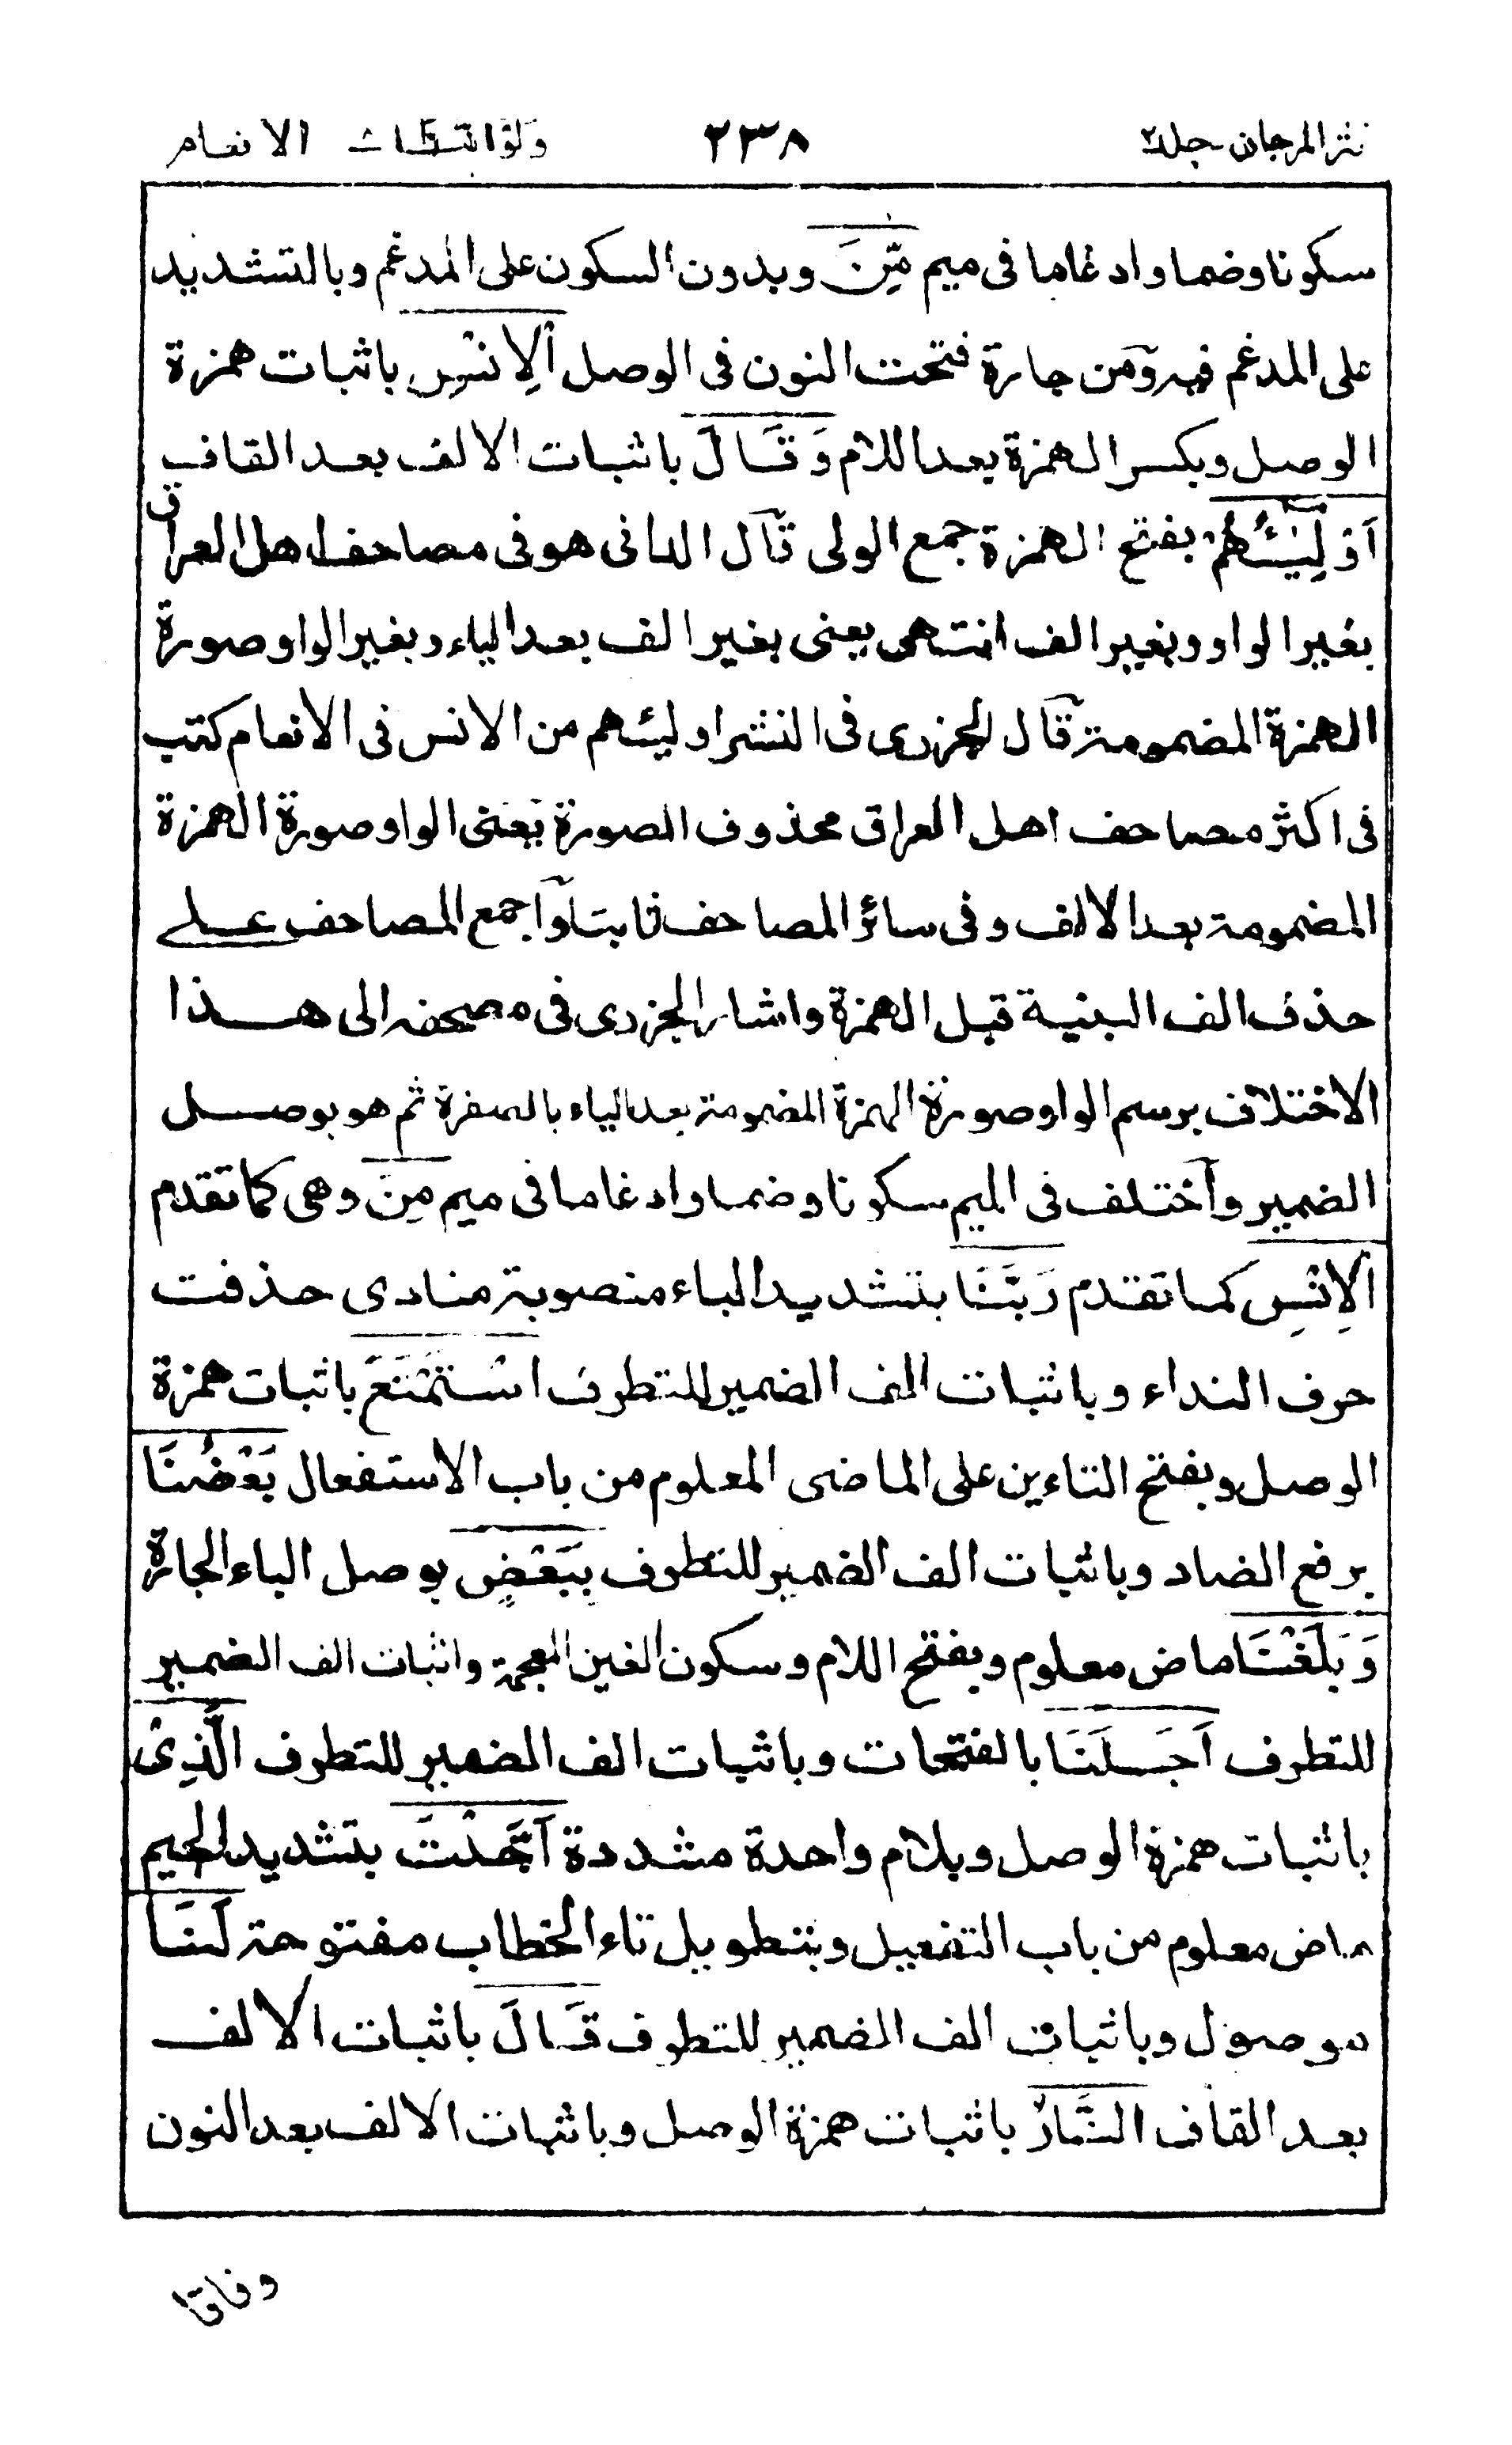 نثر المرجان جلد٢ ٢٣٨ ولواننا الانعام
سكونا وضما وادغاما فى ميم مِّنَ وبدون السكون على المدغم وبالتشديد
على المدغم فيه ومن جارة فتحت النون فى الوصل اَلْاِنْسِ باثبات همزة
الوصل وبكسر الهمزة بعد اللام وَقَالَ باثبات الالف بعد القاف
اَوْلِيٰٓئُهُمْ بفتح الهمزة جمع الولى قال الدانى هو فى مصاحف اهل العراق
بغير الواو وبغير الف انتهى يعنى بغير الف بعد الياء وبغير الواو صورة
الهمزة المضمومة قال الجزرى فى النشر اوليئهم من الانس فى الانعام كتب
فى اكثر مصاحف اهل العراق محذوف الصورة يعنى الواو صورة الهمزة
المضمومة بعد الالف وفى سائر المصاحف ثابتا واجمع المصاحف على
حذف الف البنية قبل الهمزة واشار الجزرى فى مصحفه الى هذا
الاختلاف برسم الواو صورة الهمزة المضمومة بعد الياء بالصفرة ثم هو بوصل
الضمير واختلف فى الميم سكونا وضما وادغاما فى ميم مِنَ وهى كما تقدم
اَلْاِنْسِ كما تقدم رَبَّنَا بتشديد الباء منصوبة منادى حذفت
حرف النداء وباثبات الف الضمير للتطرف اسْتَمْتَعَ باثبات همزة
الوصل وبفتح التاءين على الماضى المعلوم من باب الاستفعال بَعْضُنَا
برفع الضاد وباثبات الف الضمير للتطرف بِبَعْضٍ بوصل الباء الجارة
وَبَلَغْنَا ماض معلوم وبفتح اللام وسكون الغين المعجمة واثبات الف الضمير
للتطرف اَجَلَنَا بالفتحات وباثبات الف الضمير للتطرف الَّذِىْ
باثبات همزة الوصل وبلام واحدة مشددة اَجَّلْتَ بتشديد الجيم
ماض معلوم من باب التفعيل وبتطويل تاء الخطاب مفتوحة لَنَا
موصول وباثبات الف الضمير للتطرف قَالَ باثبات الالف
بعد القاف النَّارُ باثبات همزة الوصل وباثبات الالف بعد النون
وفاقا